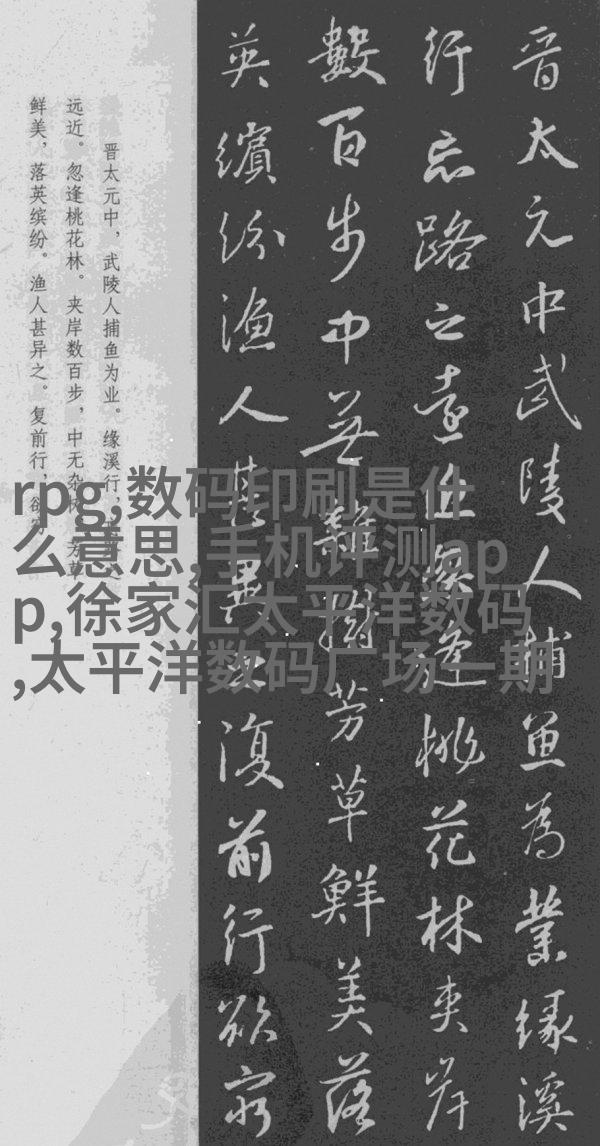 晋太元中武陵人捕鱼为業缘溪
行忘路之遠近忽逢桃花林夹岸
數百步中无雜樹芳草鮮美落
英繽纷渔人甚異之復前行欲窮
晋太元中，武陵人捕鱼为业。缘溪行，
远近。忽逢桃花林。夹岸数百步，中无杂树。芳草
鲜美，落英缤纷。渔人甚异之。复前行，欲穷
rpg,数码印刷是什
么意思,手机评测ap
p,徐家汇太平洋数码
,太平洋数码广场一期